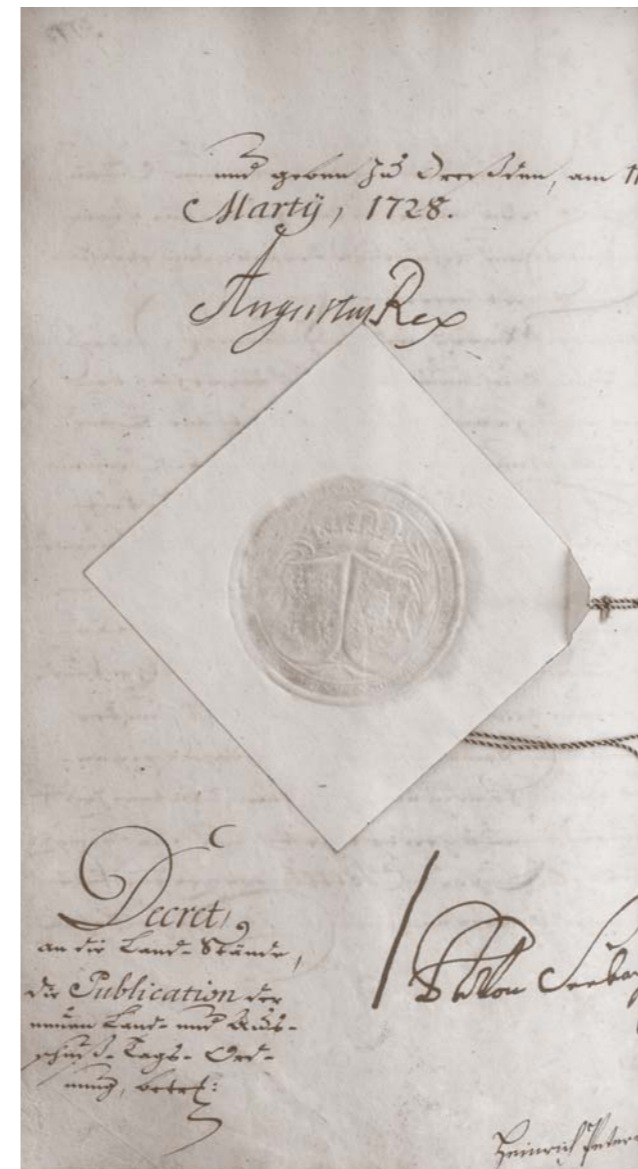 und geben zu Dreßden, am 11
Martÿ, 1728.
Augustus Rex
Decret,
an die Land-Stände,
die Publication der
neuen Land- und Auß-
schuß-Tags-Ord-
nung, betrf:
von
Heinrich